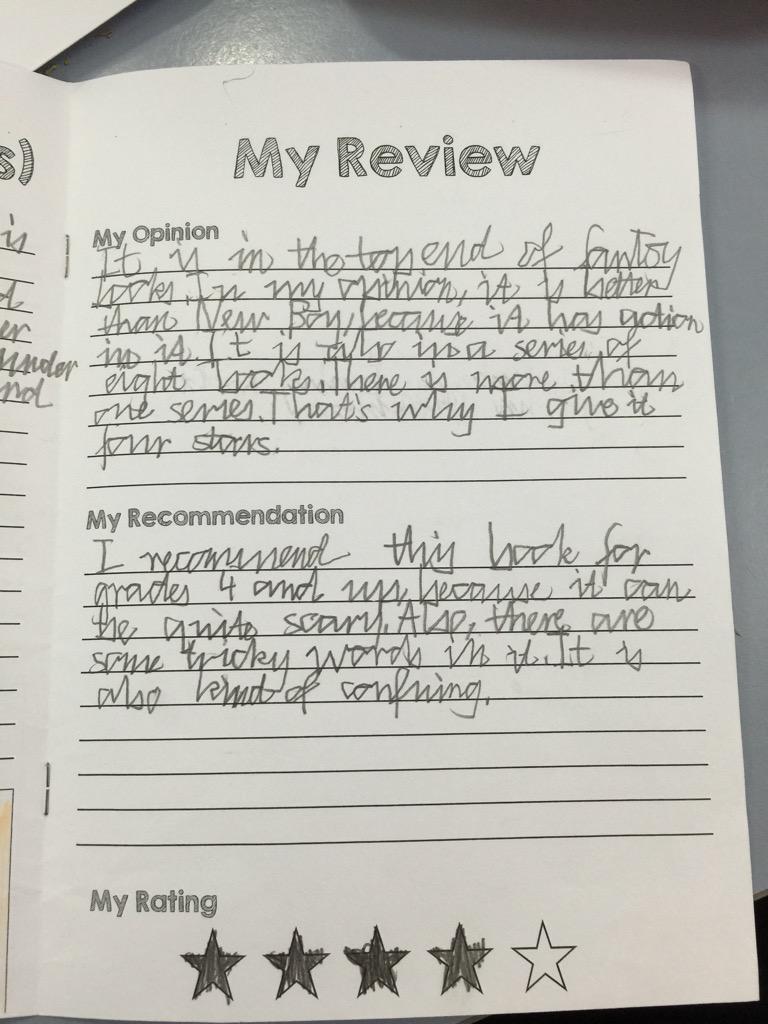 s)
is
d
er
under
nd
My Review
My Opinion
It is in the top end of fantisy
books. In my opinion, it is better
than New Boy, because it has action
in it. It is also in a series of
eight books. There is more than
one series. That's why I give it
four stars.
My Recommendation
I recommend this book for
grades 4 and up, because it can
be quite scary. Also, there are
some tricky words in it. It is
also kind of confusing.
My Rating